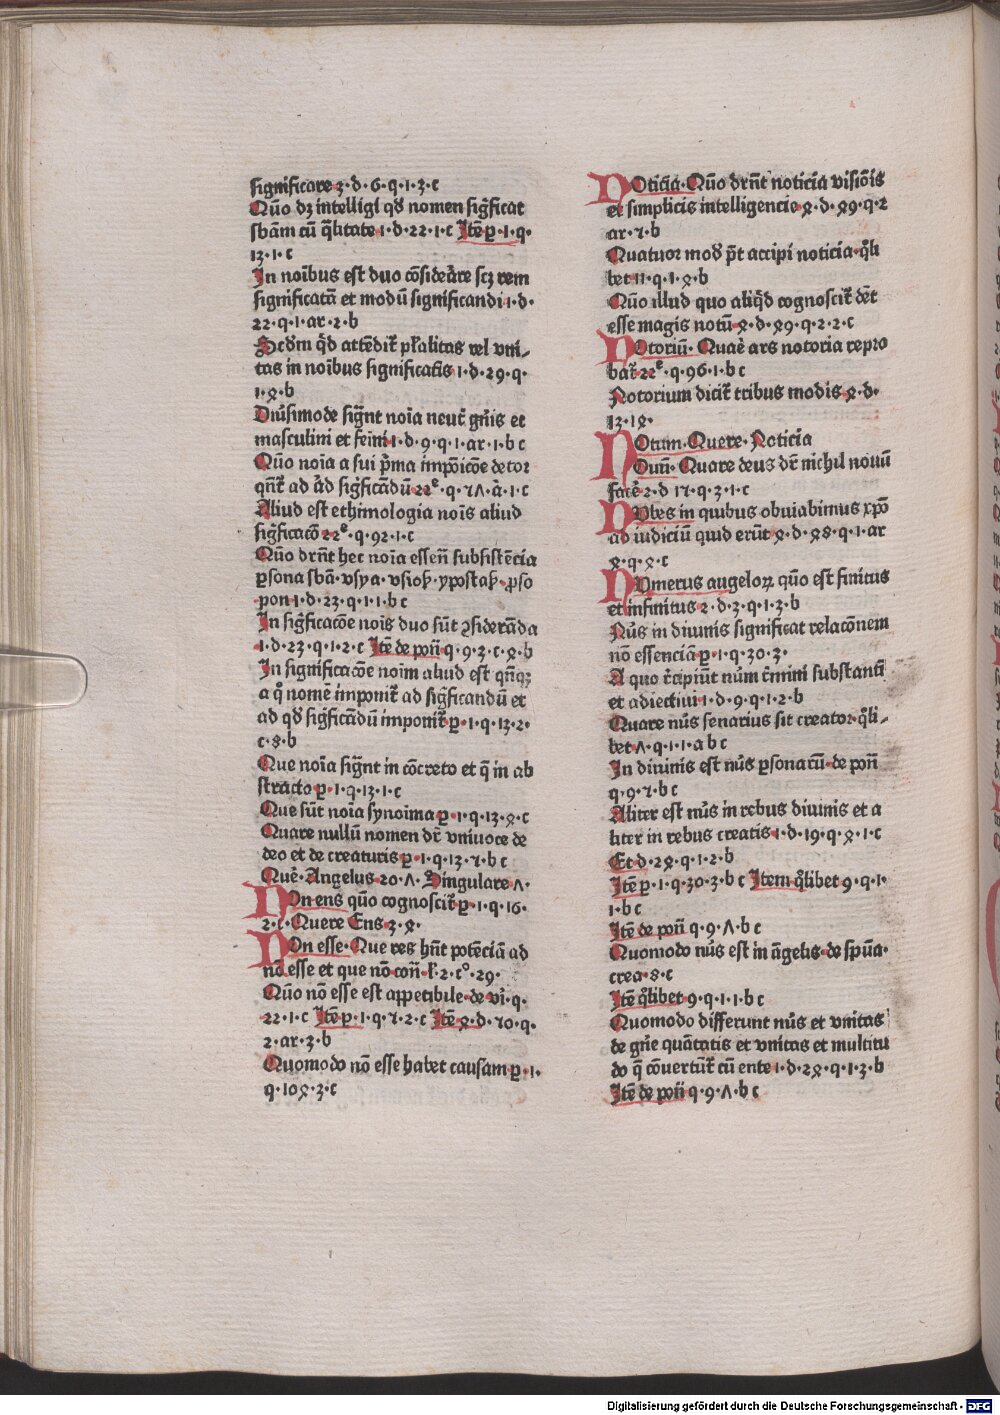 significare·3·d·6·q·1·3·c
Quō dʒ intelligi qđ nomen sig̃ficat
sbām cū q̄litate·1·d·22·1·c Itē p̲·1·q·
13·1·c
In noībus est duo cōsideāre scʒ rem
significatā et modū significandi·1·d·
22·q·1·ar·2·b
Secdm q̄d attēdit᷑ pl̄alitas vel vni⸗
tas in noībus significatis·1·d·29·q·
1·ꝝ·b
Diuīsimode sigñt noīa neuť gñis et
masculini et femī·1·d·9·q·1·ar·1·b c
Quō noīa a sui p̄ma imp̄oīcōe detor
qñt᷑ ad ād sig̃ficādū·22ᵉ·q·ꝛʌ·ā·1·c
Aliud est ethimologia noīs aliud
sig̃ficacō·22ᵉ·q·92·1·c
Quō drn̄t hec noīa essen̄ subsistēcia
p̲sona sbā·vsya·vsios̄·ypostas̄·p̱so
pon·1·d·23·q·1·1·b c
In sig̃ficacōe noīs duo sūt ꝯsiderāda
·1·d·23·q·1·2·c Itē de poñ q·9·3·c·ꝝ·b
In significacōe noīm aliud est qñqʒ
a q̊ nomē imponit᷑ ad sig̃ficandū et
ad qđ sig̃ficādū imponit᷑ p̲·1·q·13·2·
c·8·b
Que noīa sigñt in cōcreto et q̄ in ab
stracto p̲·1·q·13·1·c
Que sūt noīa synoīma p̲·1·q·13·ꝝ·c
Quare nullū nomen dr̄ vniuoce de
deo et de creaturis p̲·1·q·13·ꝛ·b c
Quē·Angelus 20·ʌ·Singulare ʌ·
NOn ens quō cognoscit᷑ p̲·1·q·16·
2·c·Quere Ens·3·ꝝ·
NOn esse·Que res hn̄t potēciā ad
nō esse et que nō con̄·l̄·2·c°·29·
Quō nō esse est appetibile·de vī·q·
22·1·c Itē p̲·1·q·ꝛ·2·c Itē ꝝ·d·ꝛ0·q·
2·ar·3·b
Quomodo nō esse habet causam p̲·1·
q·10ꝝ·3·c
NOticia·Quō drn̄t noticia visiōis
et simplicis intelligencie ꝝ·d·ꝝ9·q·2
ar·ꝛ·b
Quatuor mod p̄t accipi noticia·q̊li
bet 11·q·1·ꝝ·b
Quō illud quo aliq̄d cognoscit᷑ dēt
esse magis notū·ꝝ·d·ꝝ9·q·2·2·c
NOtoriū·Quaē ars notoria repro
bat᷑·22ᵉ·q·96·1·b c
Notorium dicit᷑ tribus modis·ꝝ·d·
13·1ꝝ·
NOtum·Quere·Noticia
NOuū·Quare deus dr̄ nichil nouū
facē·2·d 1ꝛ·q·3·1·c
NUbes in quibus obuiabimus xp̄o
ad iudiciū quid erūt ꝝ·d·ꝝ8·q·1·ar
ꝝ·q·ꝝ·c
NUmerus angeloꝝ quō est finitus
et infinitus·2·d·3·q·1·3·b
Nūs in diuinis significat relacōnem
nō essenciā p̲·1·q·30·3·
A quo ēcipiūt nūm t̄mini substanti
et adiectiui·1·d·9·q·1·2·b
Quare nūs senarius sit creator·q̊li⸗
bet ʌ·q·1·1·a b c
In diuinis est nūs p̲sonarū·de poñ
q·9·ꝛ·b c
Aliter est nūs in rebus diuinis et a
liter in rebus creatis·1·d·19·q·ꝝ·1·c
Et·d·2ꝝ·q·1·2·b
Itē p̲·1·q·30·3·b c Item q̊libet 9·q·1·
1·b c
Itē de poñ q·9·ʌ·b c
Quomodo nūs est in āgelis·de spūa·
crea·8·c
Itē q̊libet·9·q·1·1·b c
Quomodo differunt nūs et vnitas
de gñe quātatis et vnitas et multitu
do q̄ cōuertūt᷑ cū ente·1·d·2ꝝ·q·1·3·b
Itē de poñ q·9·ʌ·b c
Digitalisierung gefördert durch die Deutsche Forschungsgemeinschaft - DFG